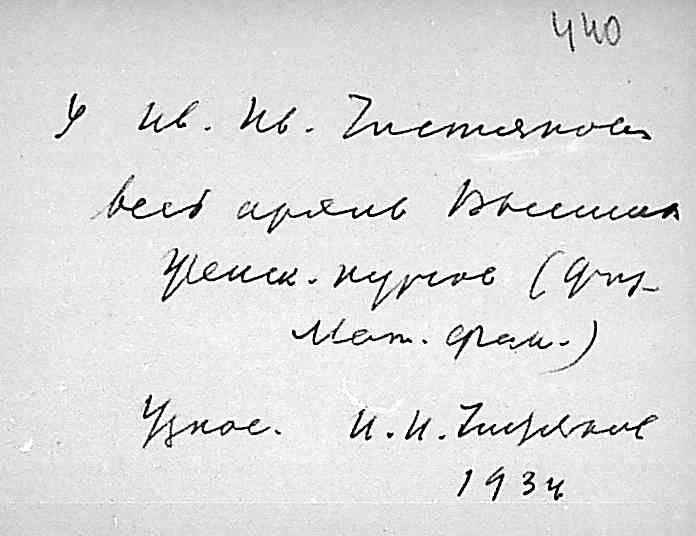 440
У Ив. Ив. Чистякова
весь архив Высших
Женск. курсов (физ-
Мат. фак.)
И. И. Чистяков
1934